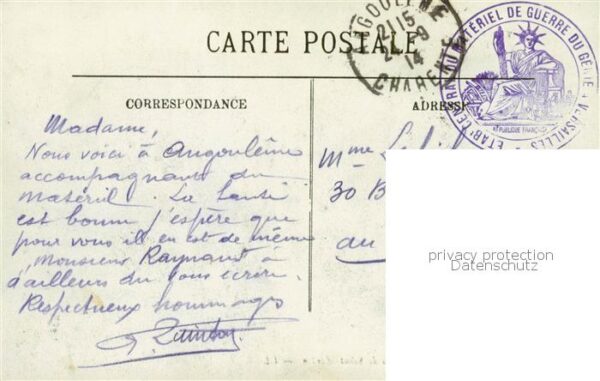 ANGOULÊME
2115
9
14
CHARENTE
CARTE POSTALE
ETABt CENTRAL DU MATÉRIEL DE GUERRE DU GÉNIE
VERSAILLES
RÉPUBLIQUE FRANÇAISE
CORRESPONDANCE
ADRESSE
Madame,
Nous voici à Angoulême
accompagnant du
matériel. La santé
est bonne j'espère que
pour vous il en est de même
Monsieur Raynaud a
d'ailleurs du vous écrire.
Respectueux hommages
Mme
30 B
au
privacy protection
Datenschutz